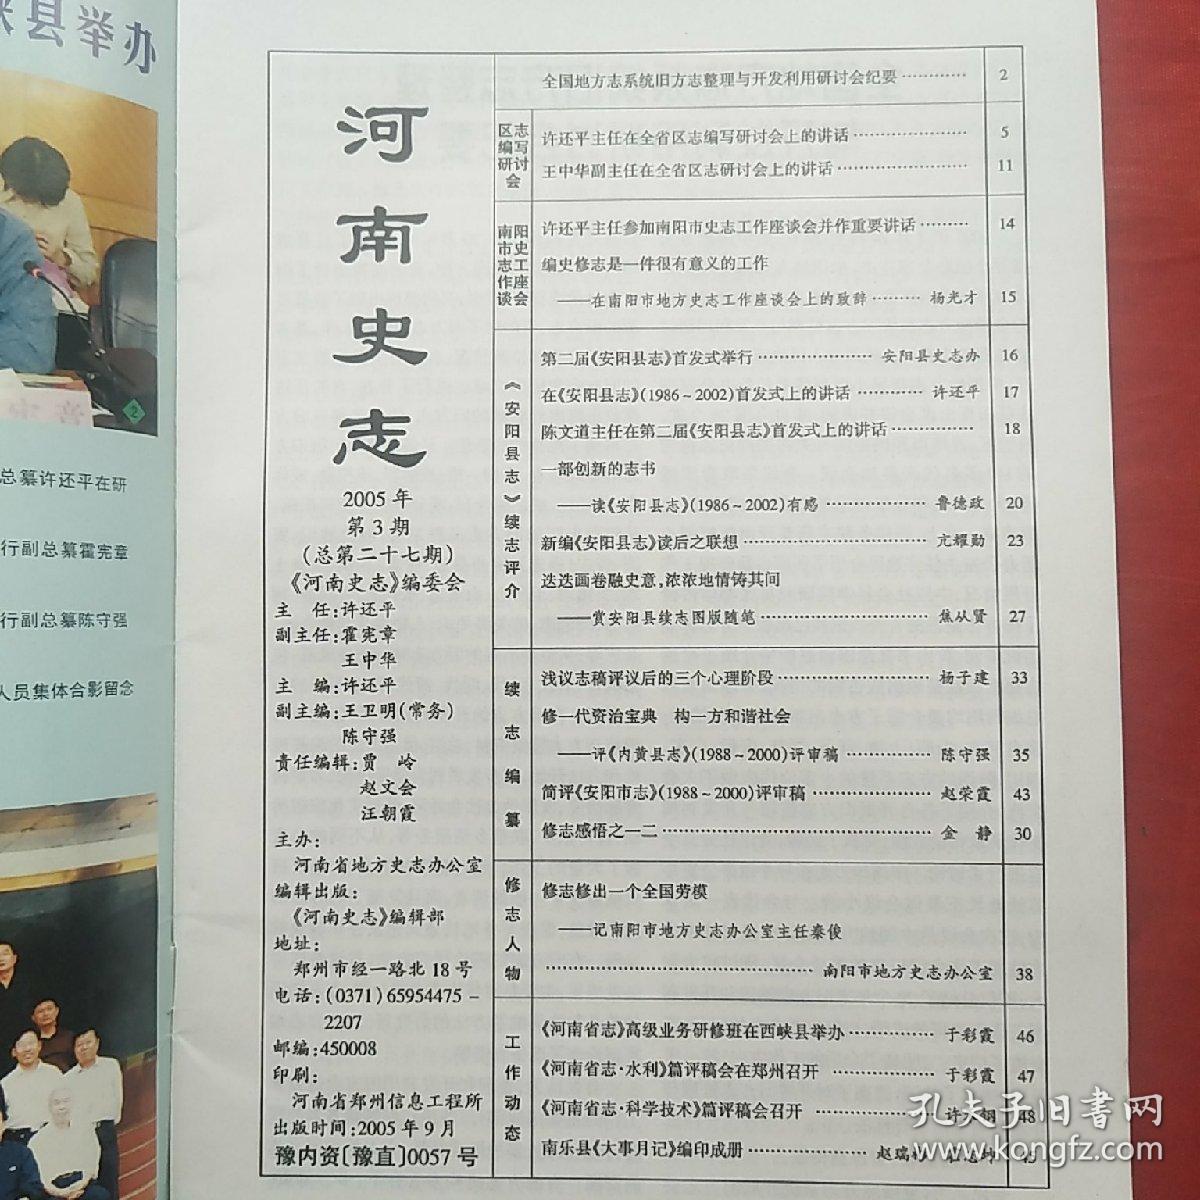 峡县举办
总纂许还平在研
行副总纂霍宪章
行副总纂陈守强
人员集体合影留念
2
河南史志
2005年
第3期
(总第二十七期)
《河南史志》编委会
主 任:许还平
副主任:霍宪章
王中华
主 编:许还平
副主编:王卫明(常务)
陈守强
责任编辑:贾 岭
赵文会
汪朝霞
主办:
河南省地方史志办公室
编辑出版:
《河南史志》编辑部
地址:
郑州市经一路北18号
电话:(0371)65954475-
2207
邮编:450008
印刷:
河南省郑州信息工程所
出版时间:2005年9月
豫内资〔豫直〕0057号
全国地方志系统旧方志整理与开发利用研讨会纪要………… 2
区志编写研讨会
许还平主任在全省区志编写研讨会上的讲话………………… 5
王中华副主任在全省区志研讨会上的讲话………………… 11
南阳市史志工作座谈会
许还平主任参加南阳市史志工作座谈会并作重要讲话……… 14
编史修志是一件很有意义的工作
——在南阳市地方史志工作座谈会上的致辞……… 杨光才 15
《安阳县志》续志评介
第二届《安阳县志》首发式举行………………… 安阳县史志办 16
在《安阳县志》(1986~2002)首发式上的讲话………… 许还平 17
陈文道主任在第二届《安阳县志》首发式上的讲话…………… 18
一部创新的志书
——读《安阳县志》(1986~2002)有感……………… 鲁德政 20
新编《安阳县志》读后之联想……………………………… 亢耀勋 23
迭迭画卷融史意,浓浓地情铸其间
——赏安阳县续志图版随笔………………………… 焦从贤 27
续志编纂
浅议志稿评议后的三个心理阶段……………………… 杨子建 33
修一代资治宝典 构一方和谐社会
——评《内黄县志》(1988~2000)评审稿…………… 陈守强 35
简评《安阳市志》(1988~2000)评审稿………………… 赵荣霞 43
修志感悟之一二……………………………………… 金 静 30
修志人物
修志修出一个全国劳模
——记南阳市地方史志办公室主任秦俊
……………………………………… 南阳市地方史志办公室 38
工作动态
《河南省志》高级业务研修班在西峡县举办…………… 于彩霞 46
《河南省志·水利》篇评稿会在郑州召开 ……………… 于彩霞 47
《河南省志·科学技术》篇评稿会召开 ………………… 许天翱 48
南乐县《大事月记》编印成册…………………… 赵瑞
孔夫子旧书网
www.kongfz.com